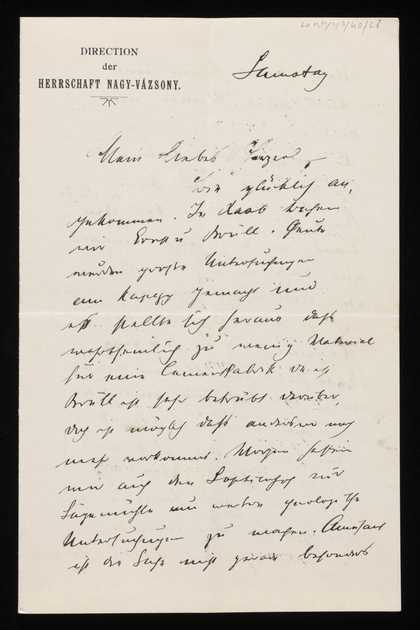 DIRECTION
der
HERRSCHAFT NAGY-VÁZSONY.
Samstag
Mein liebes
Wir glücklich an,
gekommen. In Raab waren
wir Ernst u Brüll. Heute
wurden große Untersuchungen
am gemacht und
es stellte sich heraus daß
wahrscheinlich zu wenig Material
für eine Cementfabrik da ist
Brüll ist sehr betrübt darüber,
doch ist möglich daß anderswo noch
mehr vorkommt. Morgen fahren
wir auch den zur
Sägemühle um weitere geologische
Untersuchungen zu machen. Amusant
ist die Sache nicht gerade besonders